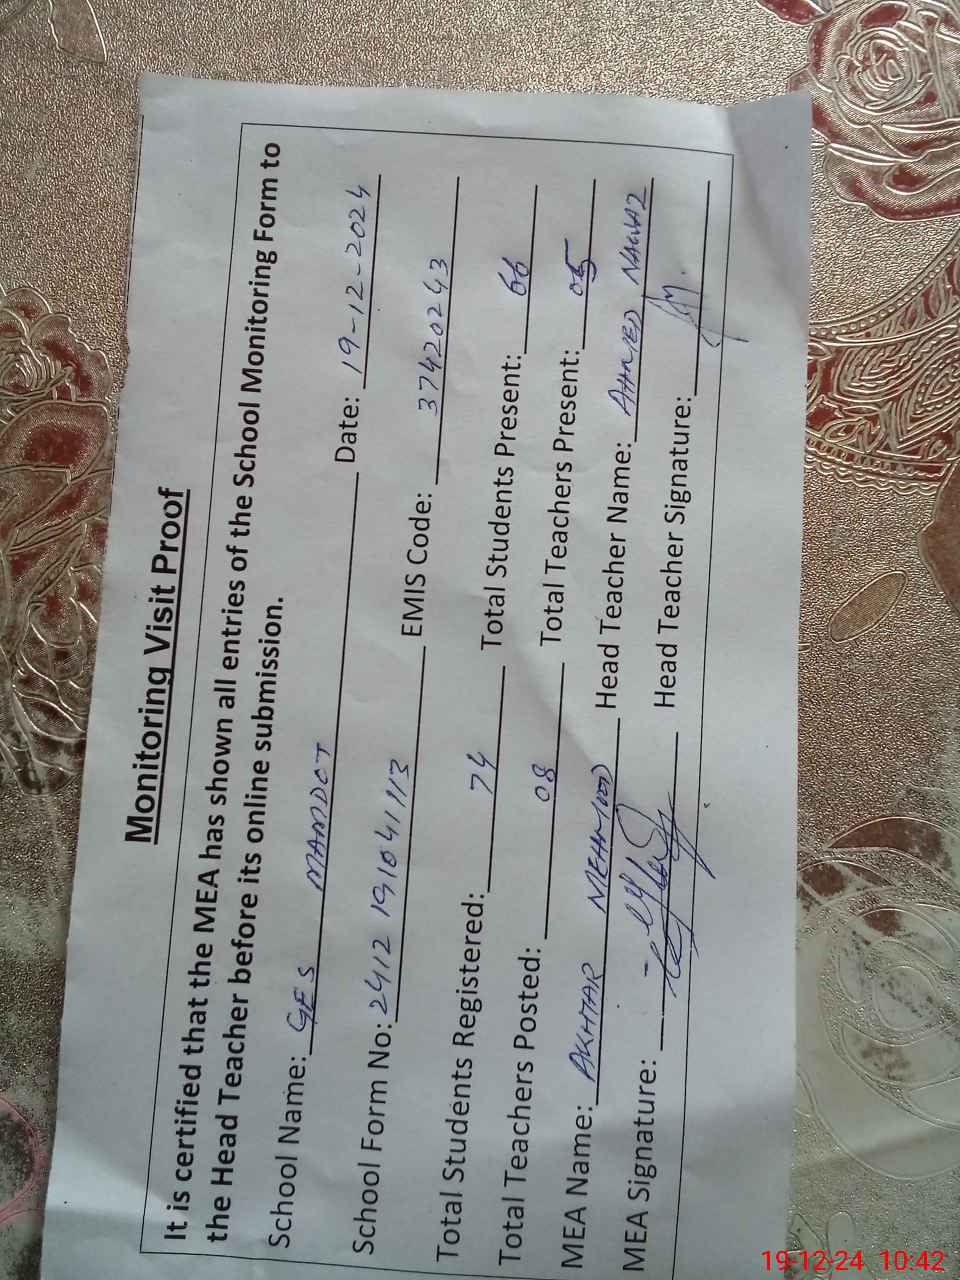 Monitoring Visit Proof
It is certified that the MEA has shown all entries of the School Monitoring Form to
the Head Teacher before its online submission.
School Name: GES MAMDOT Date: 19-12-2024
School Form No: 2412 191041113 EMIS Code: 37420243
Total Students Registered: 74 Total Students Present: 66
Total Teachers Posted: 08 Total Teachers Present: 05
MEA Name: AKHTAR MEHMOOD Head Teacher Name: AHMED NAWAZ
MEA Signature: Head Teacher Signature:
19-12-24 10:42